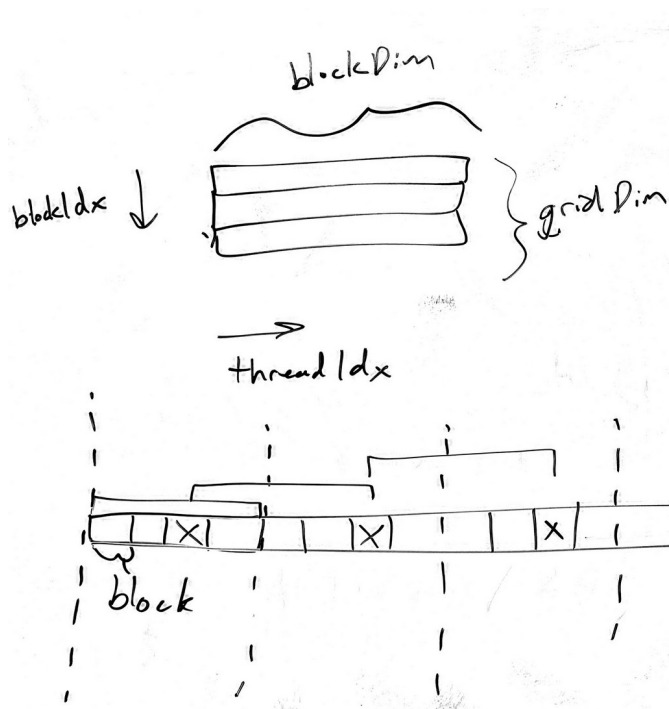 blockDim
blockIdx
gridDim
threadIdx
X
X
X
block